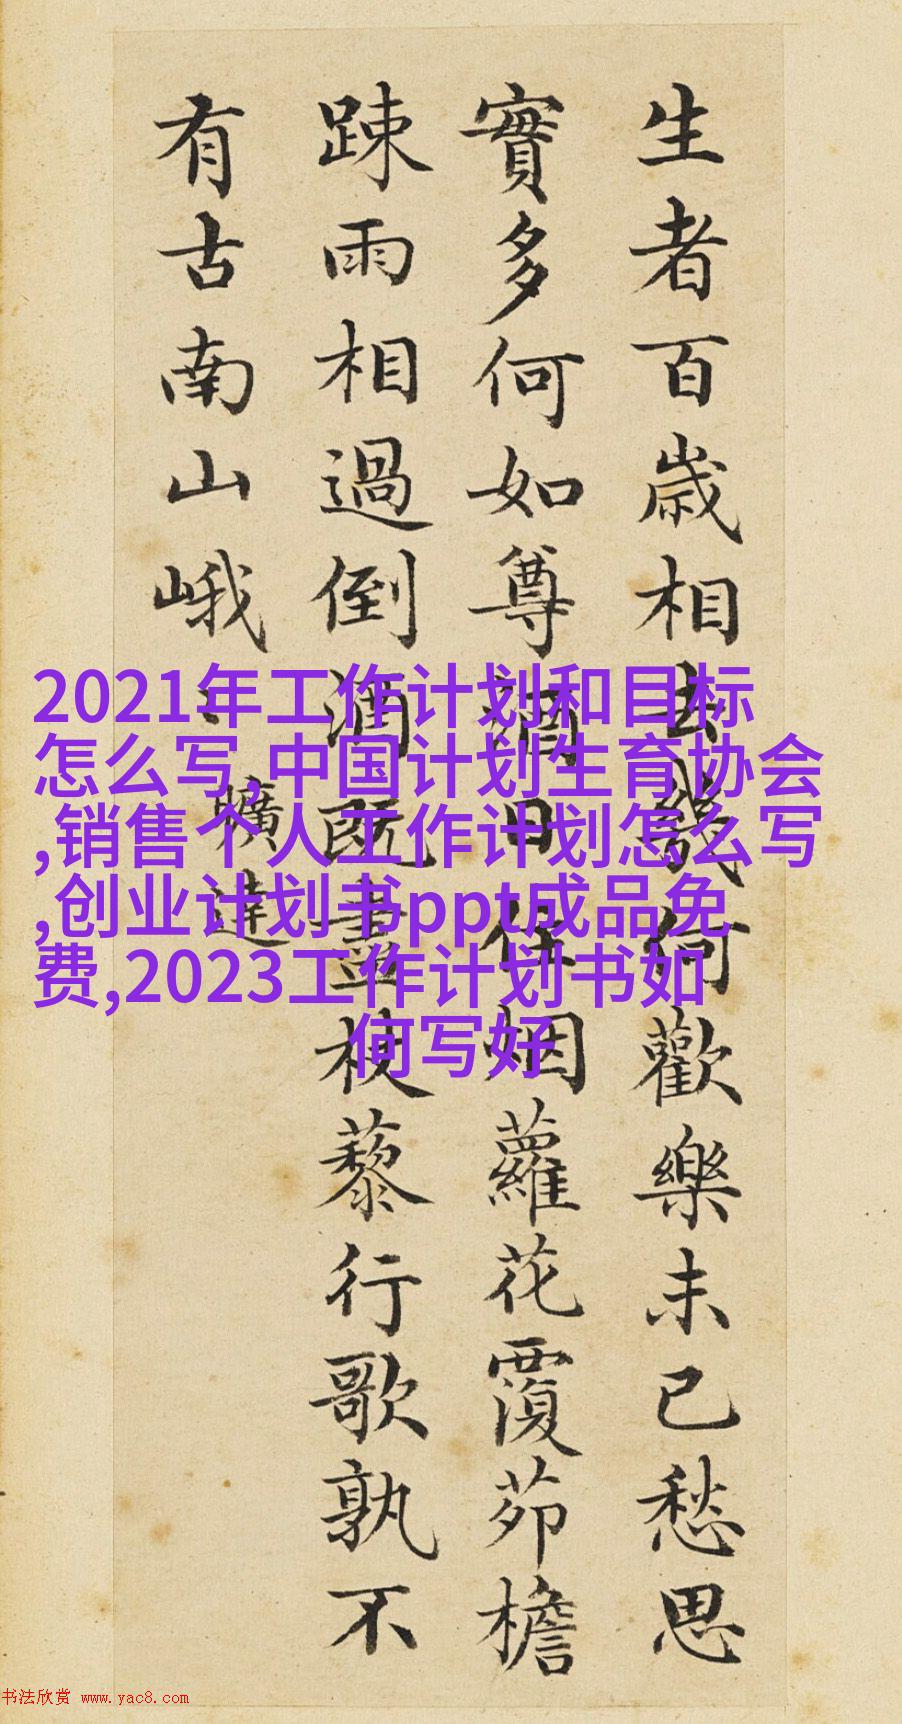 生者百歳相去幾何歡樂未已愁思
實多何如尊酒日往烟蘿花覆茆檐
踈雨相過倒酒既盡杖藜行歌孰不
有古南山峨
曠達
2021年工作计划和目标
怎么写,中国计划生育协会
,销售个人工作计划怎么写
,创业计划书ppt成品免
费,2023工作计划书如
何写好
书法欣赏 www.yac8.com